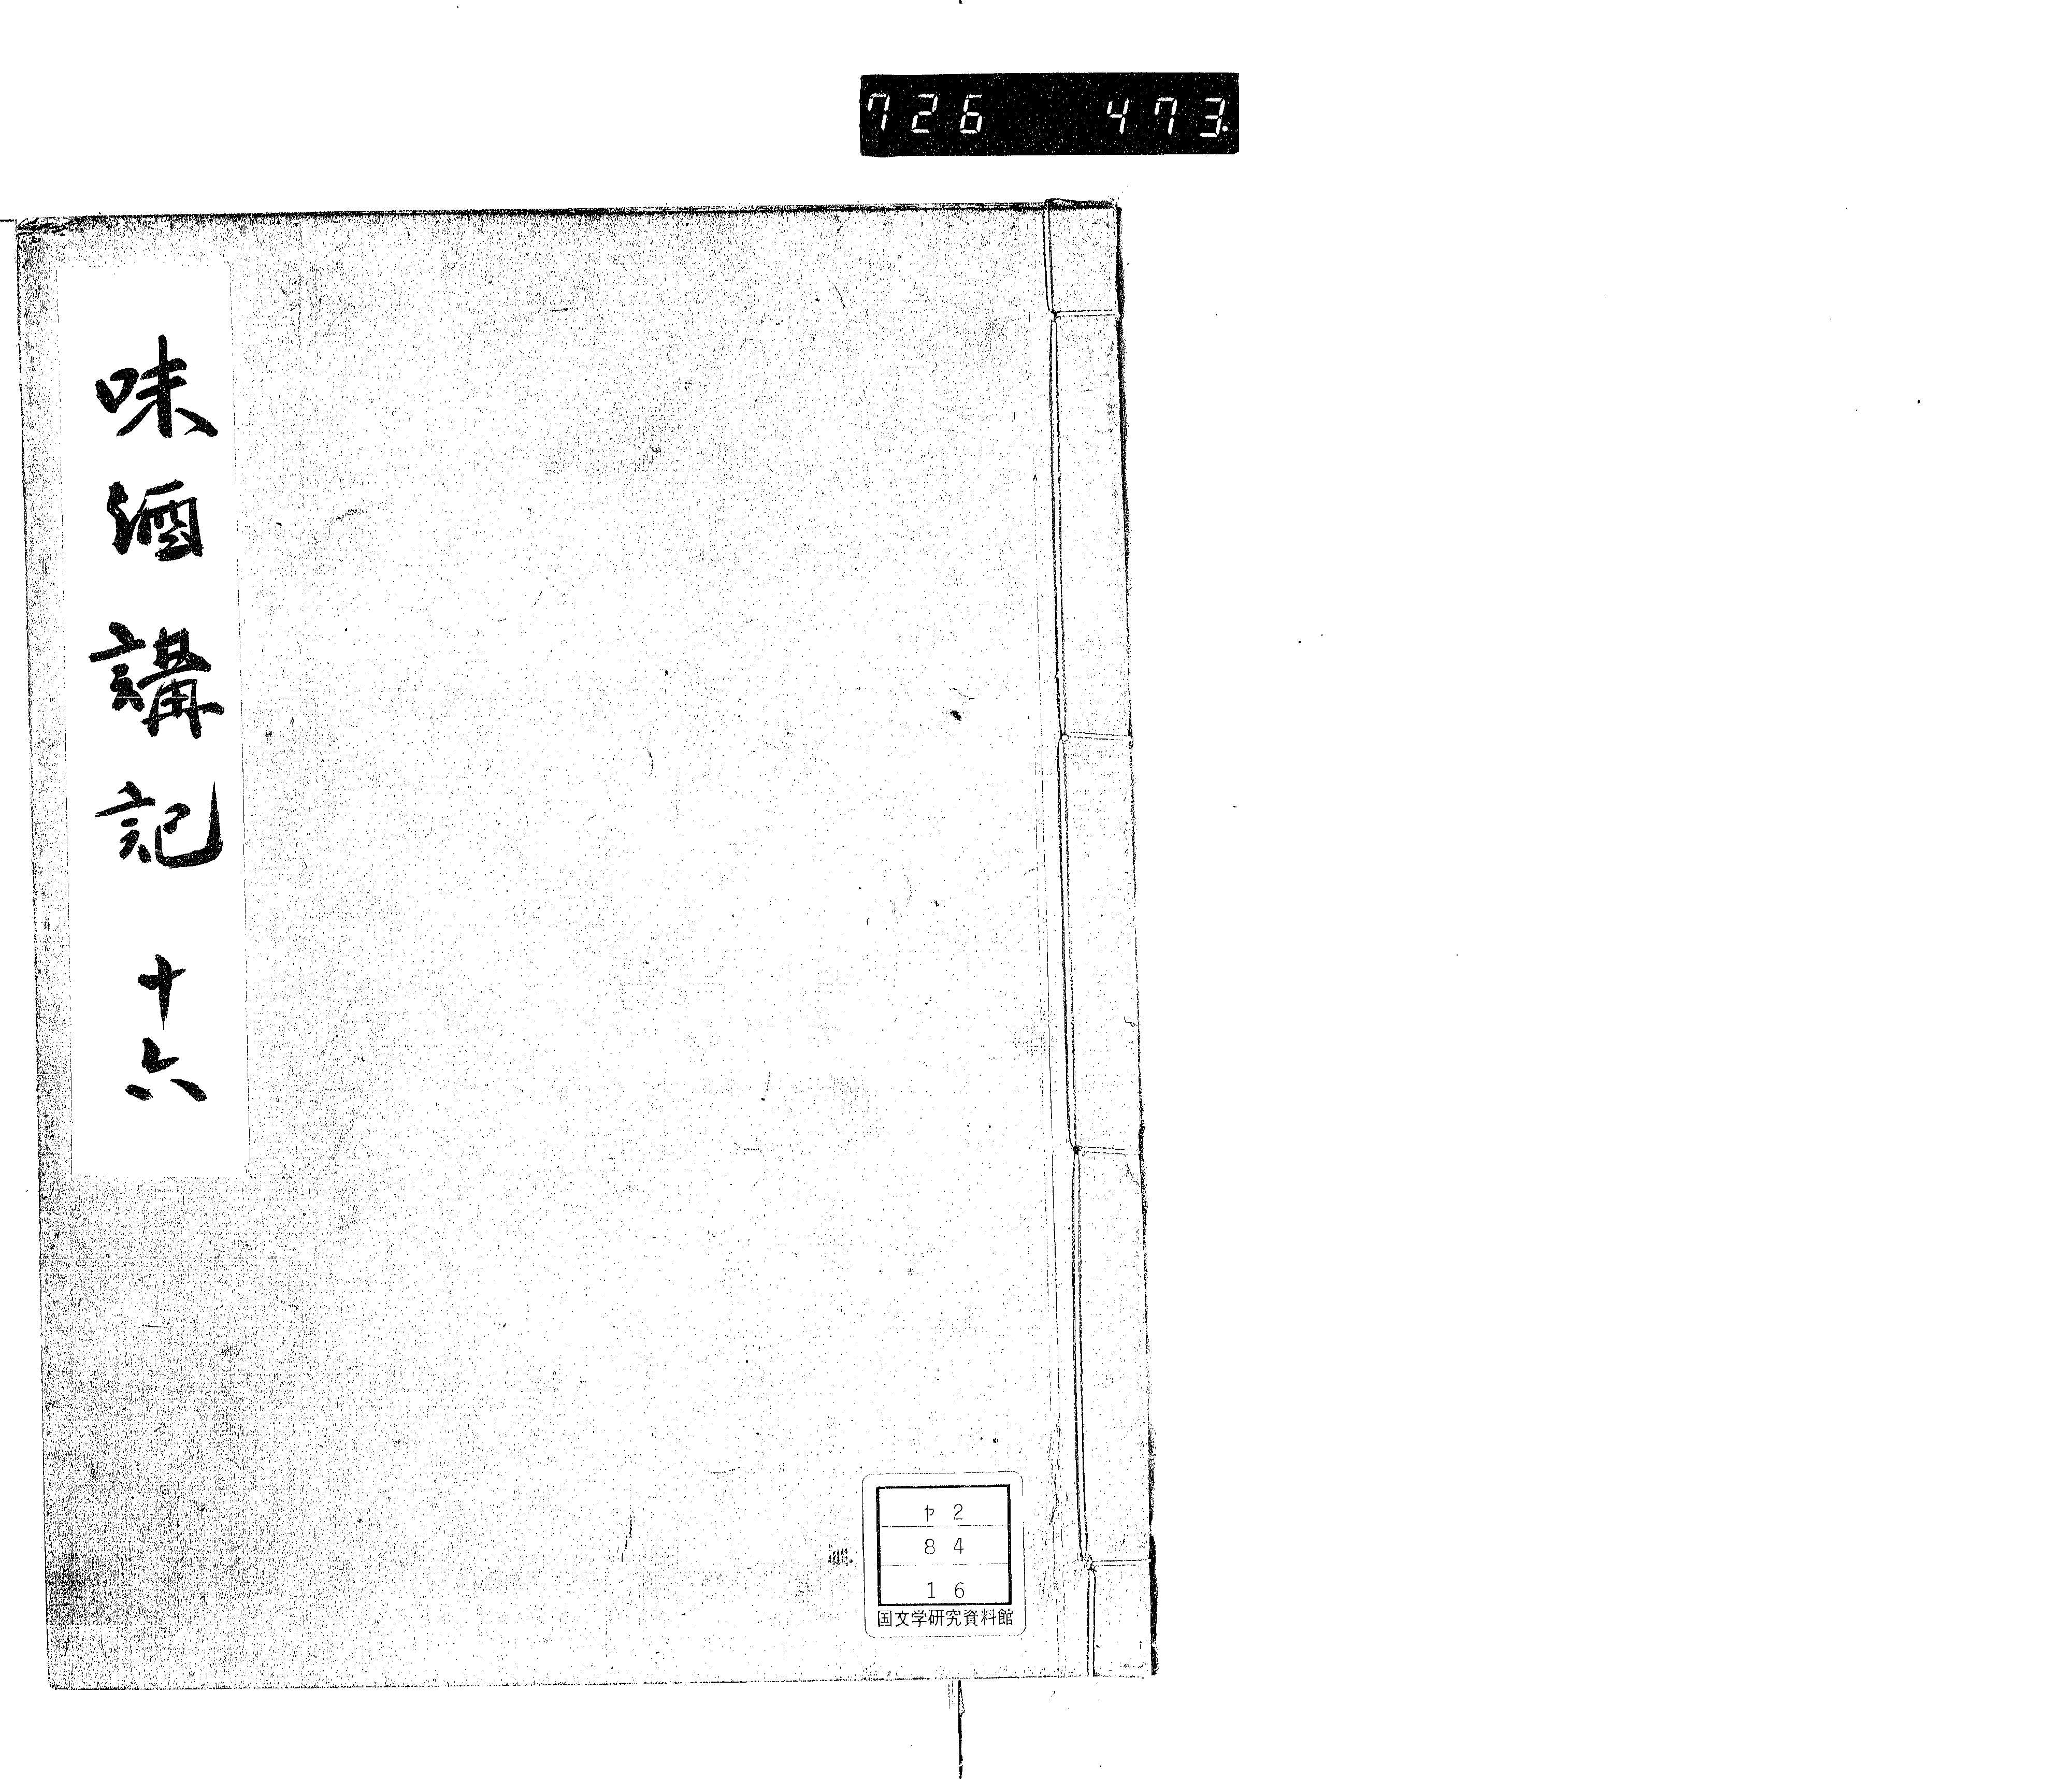 726 473
味酒講記 十六
ヤ2
84
16
国文学研究資料館